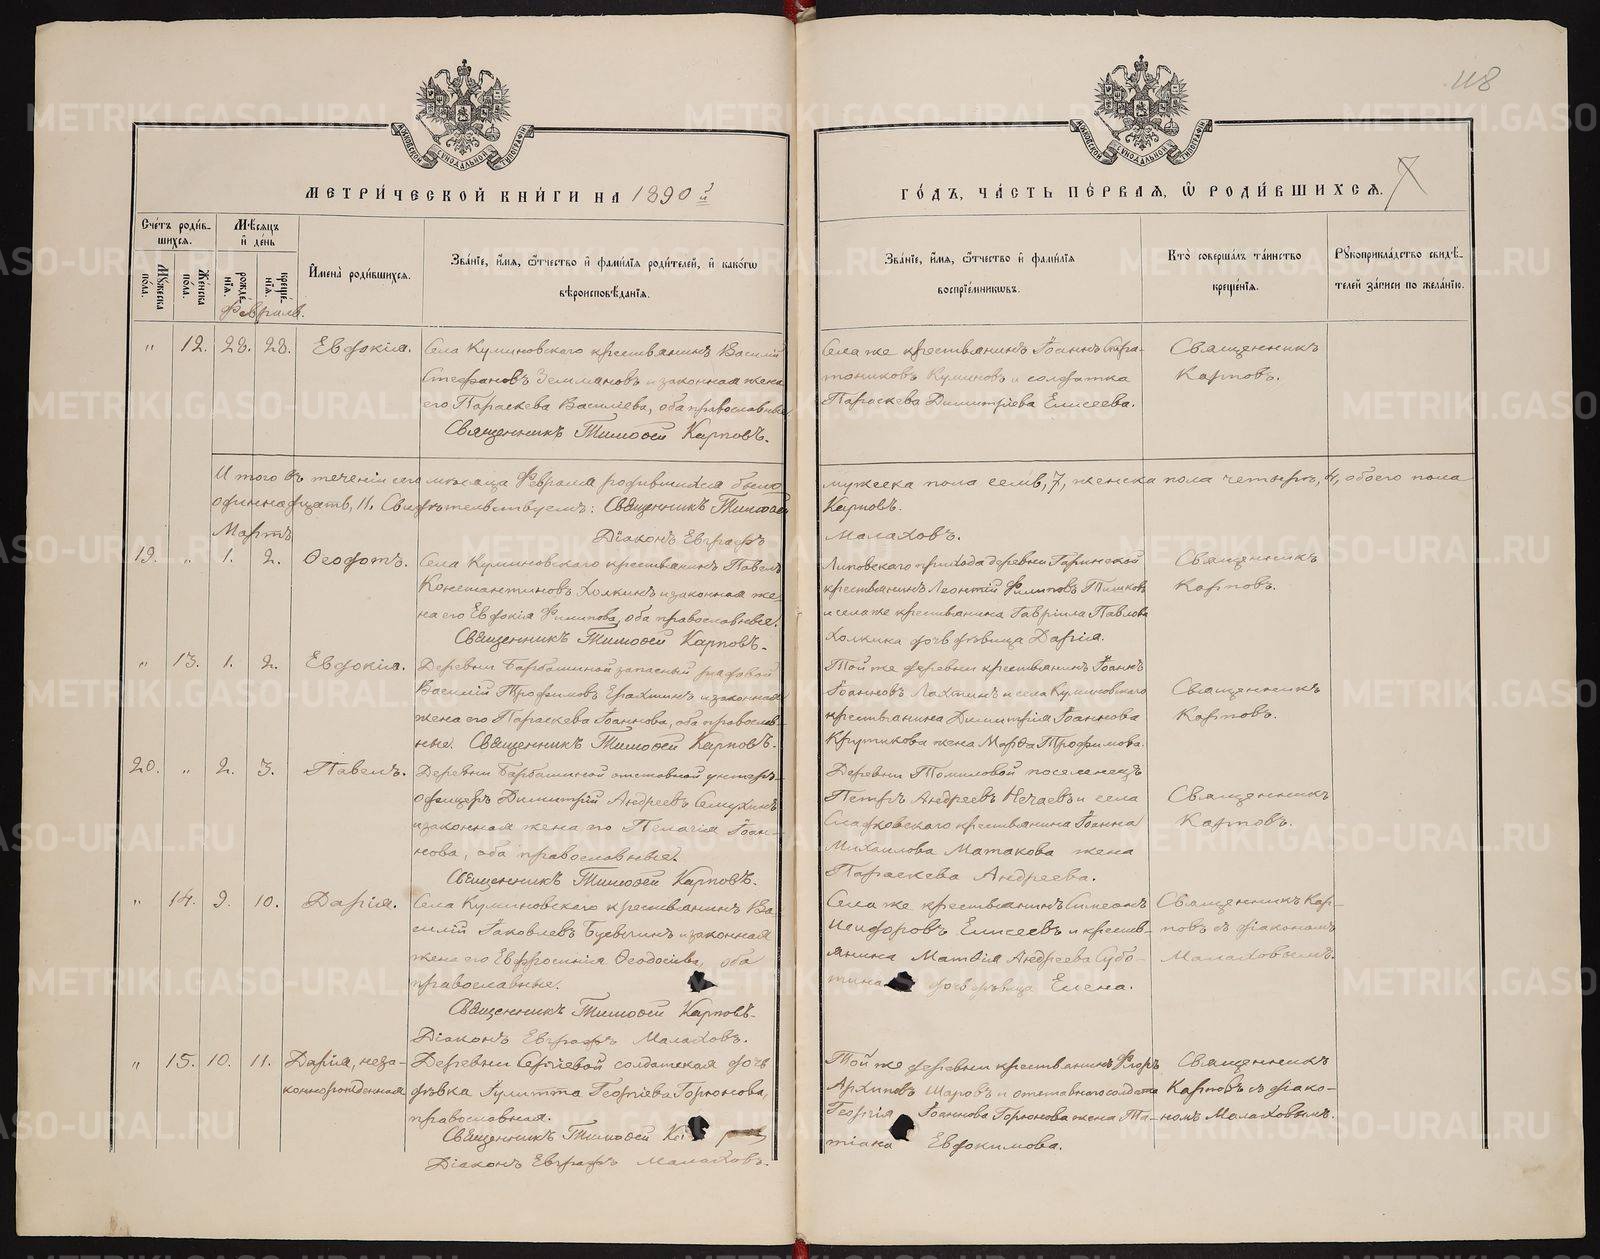 118
МЕТРИ́ЧЕСКОЙ КНИ́ГИ НА 1890 й
ГО́ДЪ, ЧА́СТЬ ПЕ́РВАЯ, Ѡ РОДИ́ВШИХСѦ. 7
Сче́тъ роди́вшихсѧ.
Мѣ́сѧцъ и҆ де́нь
И҆мена̀ роди́вшихсѧ.
Зва́нїе, и҆́мѧ, ѻ҆́тчество и҆ фами́лїѧ роди́телей, и҆ како́гѡ
вѣроисповѣ́данїѧ.
Мꙋ́жеска по́ла.
Же́нска по́ла.
рожде́нїѧ.
креще́нїѧ.
Зва́нїе, и҆́мѧ, ѻ҆́тчество и҆ фами́лїѧ
воспрїе́мникѡвъ.
Кто̀ соверша́лъ та́инство
креще́нїѧ.
Рꙋкоприкла́дство свидѣ́-
телей за́писи по жела́нїю.
Февраль.
" 12. 28. 28. Евдокія. Села Куминовскаго крестьянинъ Василій
Стефановъ Земмановъ и законная жена
его Параскева Василіева, оба православные
Священникъ Тимоѳей Карповъ.
Села же крестьянинъ Іоаннъ Стра-
тониковъ Куминовъ и солдатка
Параскева Димитріева Елисеева.
Священникъ
Карповъ.
Итого въ теченіи сего мѣсяца Февраля родившихся было мужеска пола семь, 7, женска пола четыре, 4, обоего пола
одиннадцать, 11. Свидѣтельствуемъ: Священникъ Тимоѳей Карповъ.
Діаконъ Евграфъ Малаховъ.
Мартъ
19. " 1. 2. Ѳеодотъ. Села Куминовскаго крестьянинъ Павелъ
Константиновъ Холкинъ и законная же-
на его Евдокія Филипова, оба православные.
Священникъ Тимоѳей Карповъ.
Липовскаго прихода деревни Гаринской
крестьянинъ Леонтій Филиповъ
и села же крестьянина Гавріила Павлова
Холкина дочь дѣвица Дарія.
Священникъ
Карповъ.
" 13. 1. 2. Евдокія. Деревни Барбашиной запасный рядовой
Василій Трофимовъ Ерахтинъ и законная
жена его Параскева Іоаннова, оба православ-
ные. Священникъ Тимоѳей Карповъ.
Той же деревни крестьянинъ Іоаннъ
Іоанновъ Лахтинъ и села Куминовскаго
крестьянина Димитрія Іоаннова
Крутикова жена Марѳа Трофимова.
Священникъ
Карповъ.
20. " 2. 3. Павелъ. Деревни Барбашиной отставной унтеръ-
офицеръ Димитрій Андреевъ Семухинъ
и законная жена его Пелагія Іоан-
нова, оба православные.
Священникъ Тимоѳей Карповъ.
Деревни Томиловой поселенецъ
Петръ Андреевъ Нечаевъ и села
Сладковскаго крестьянина Іоанна
Михаилова Матакова жена
Параскева Андреева.
Священникъ
Карповъ.
" 14. 9. 10. Дарія. Села Куминовскаго крестьянинъ Ва-
силій Іаковлевъ и законная
жена его Евфросинія Ѳеодосіева, оба
православные.
Священникъ Тимоѳей Карповъ.
Діаконъ Евграфъ Малаховъ.
Села же крестьянинъ Симеонъ
Исидоровъ Елисеевъ и кресть-
янина Матѳія Андреева Субо-
тина дочь дѣвица Елена.
Священникъ Кар-
повъ съ діакономъ
Малаховымъ.
" 15. 10. 11. Дарія, неза-
коннорожденная
Деревни Сергіевой солдатская дочь
дѣвка Іулитта Георгіева Горюнова,
православная.
Священникъ Тимоѳей
Діаконъ Евграфъ Малаховъ.
Той же деревни крестьянинъ Флоръ
Архиповъ Шаровъ и отставнаго солдата
Георгія Іоаннова Горюнова жена Та-
тіана Евдокимова.
Священникъ
Карповъ съ діако-
номъ Малаховымъ.